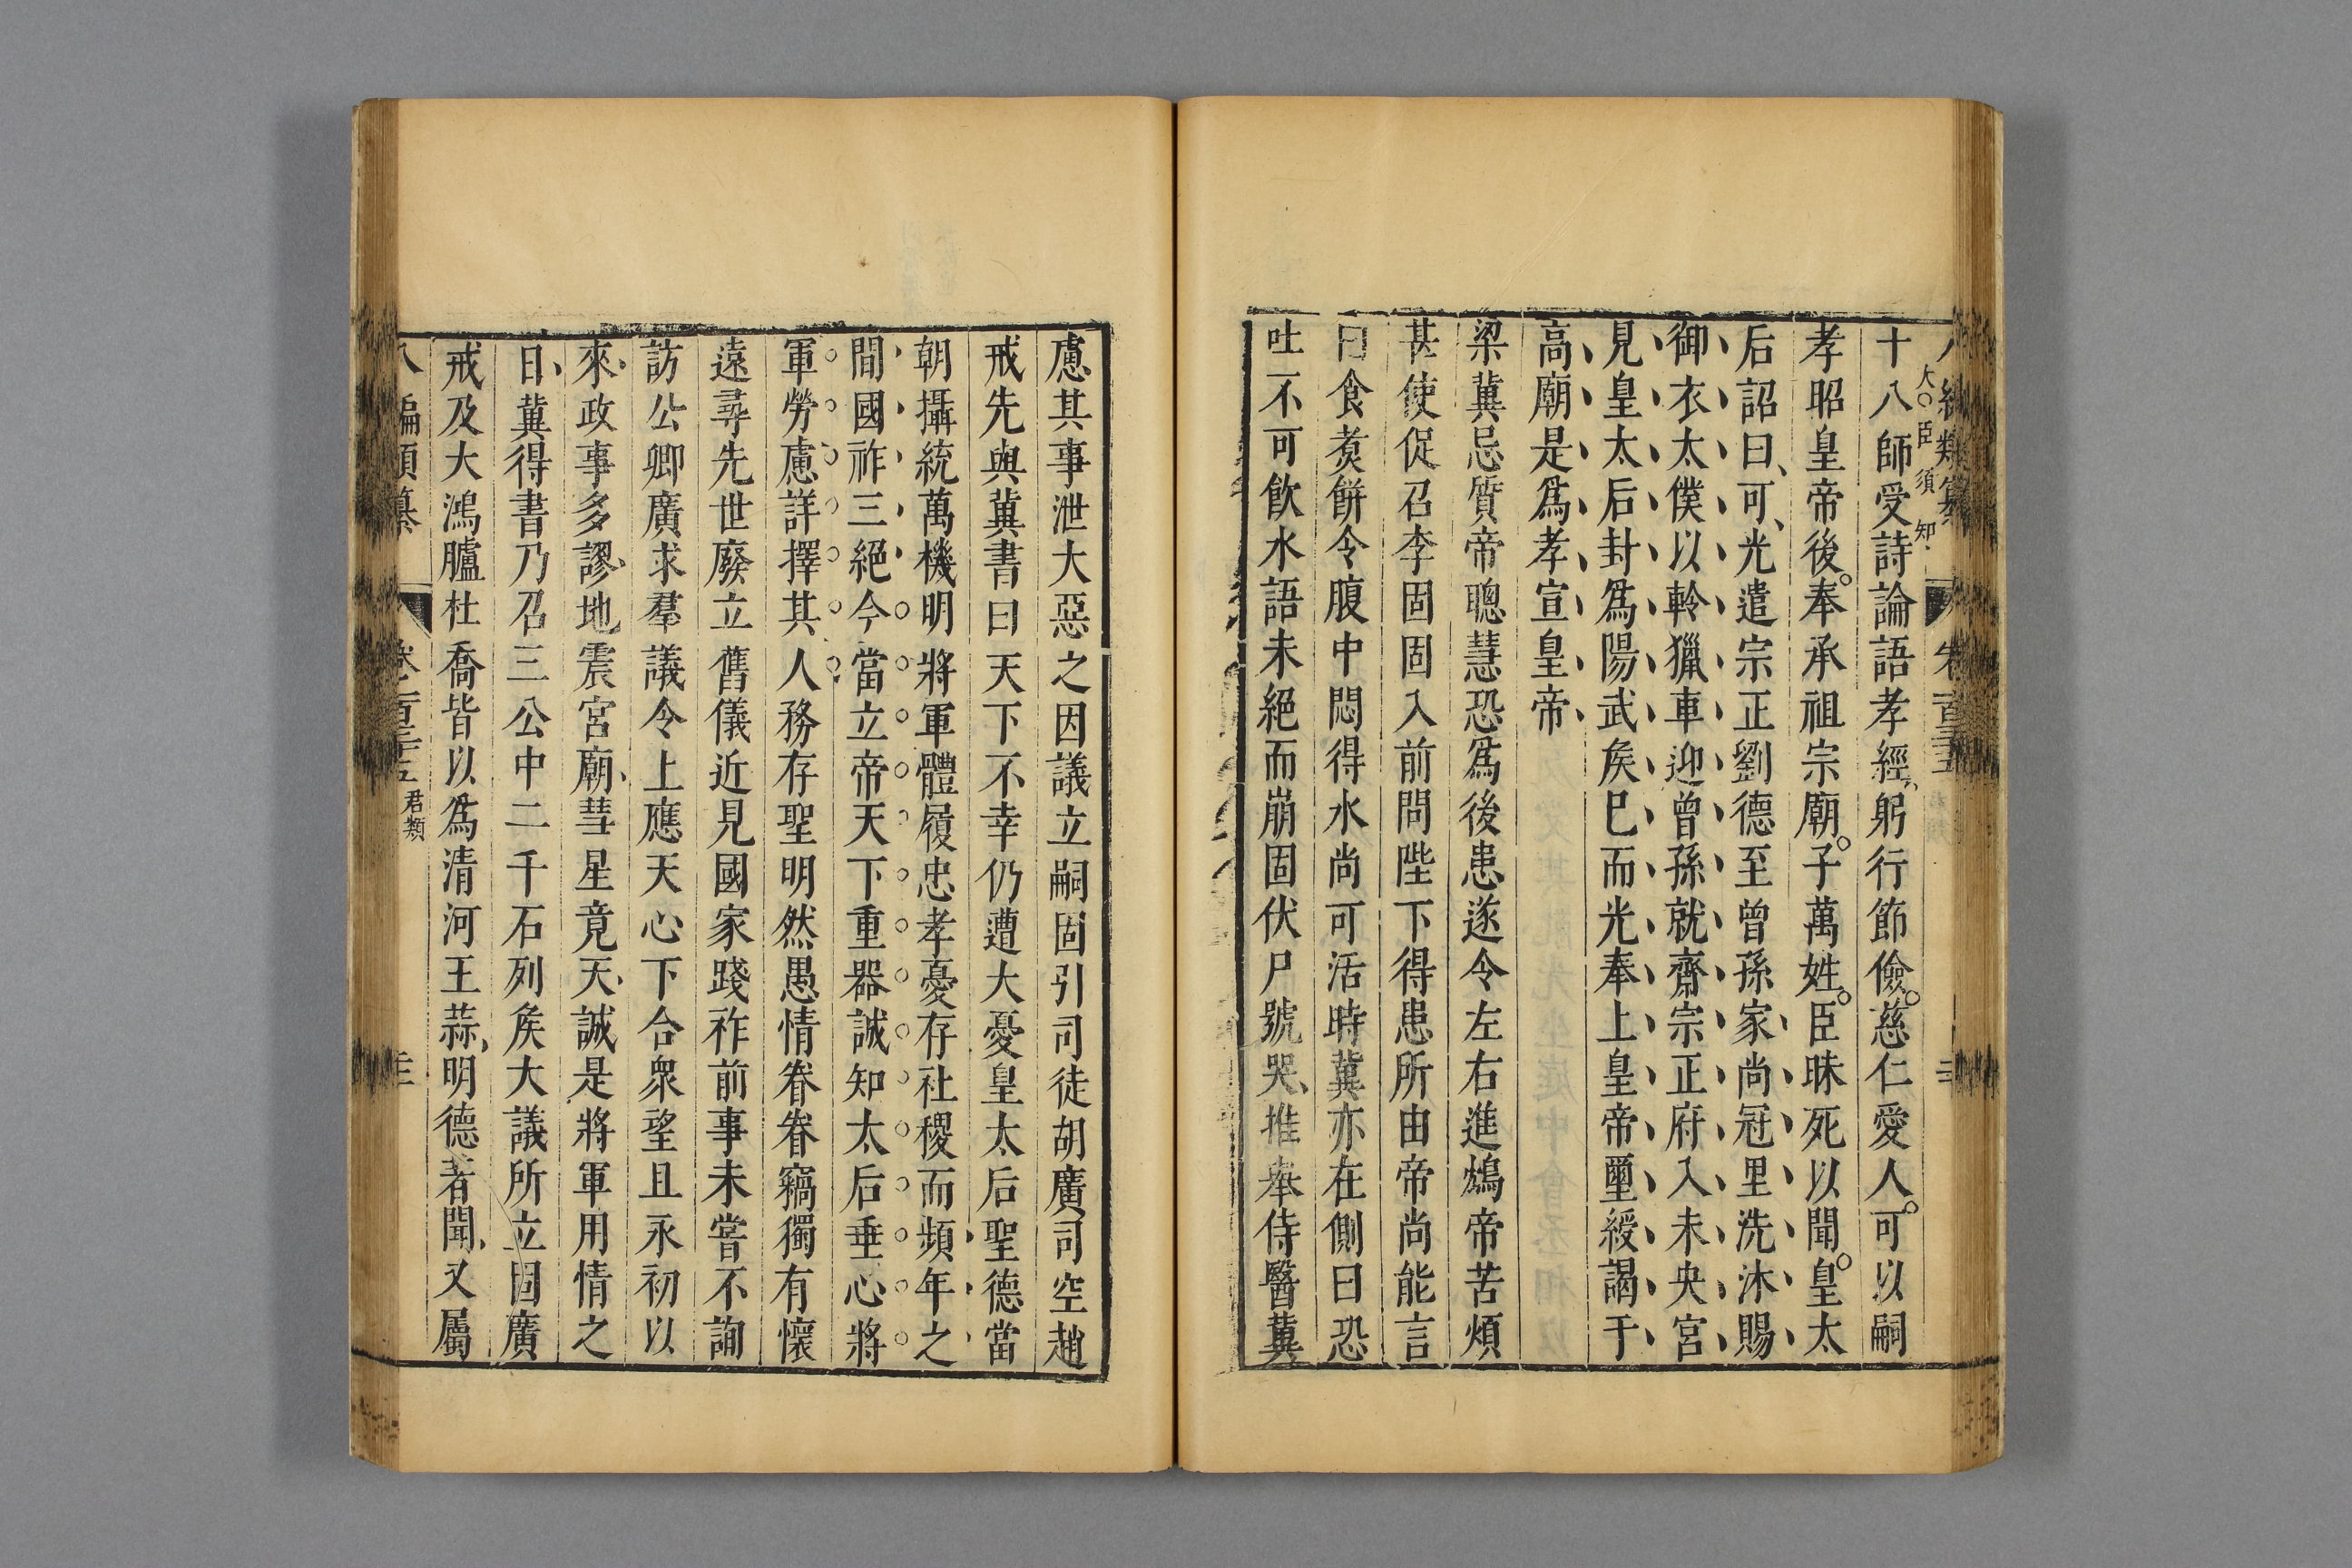 大臣須知
十八師受詩論語孝經躬行節儉慈仁愛人可以嗣
孝昭皇帝後奉承祖宗廟子萬姓臣昧死以聞皇太
后詔曰可光遣宗正劉德至曾孫家尚冠里洗沐賜
御衣太僕以軨獵車迎曾孫就齋宗正府入未央宮
見皇太后封爲陽武矦巳而光奉上皇帝璽綬謁于
高廟是爲孝宣皇帝
梁冀忌質帝聰慧恐爲後患遂令左右進鴆帝苦煩
甚使促召李固固入前問陛下得患所由帝尚能言
曰食煑餅令腹中悶得水尚可活時冀亦在側曰恐
吐不可飲水語未絕而崩固伏尸號哭推舉侍醫冀
慮其事泄大惡之因議立嗣固引司徒胡廣司空趙
戒先與冀書曰天下不幸仍遭大憂皇太后聖德當
朝攝統萬機明將軍體履忠孝憂存社稷而頻年之
間國祚三絕今當立帝天下重器誠知太后垂心將
軍勞慮詳擇其人務存聖明然愚情眷眷竊獨有懷
遠尋先世廢立舊儀近見國家踐祚前事未嘗不詢
訪公卿廣求羣議令上應天心下合衆望且永初以
來政事多謬地震宮廟彗星竟天誠是將軍用情之
日冀得書乃召三公中二千石列矦大議所立固廣
戒及大鴻臚杜喬皆以爲清河王蒜明德著聞又屬
八編類纂 卷之一百三十五 君類